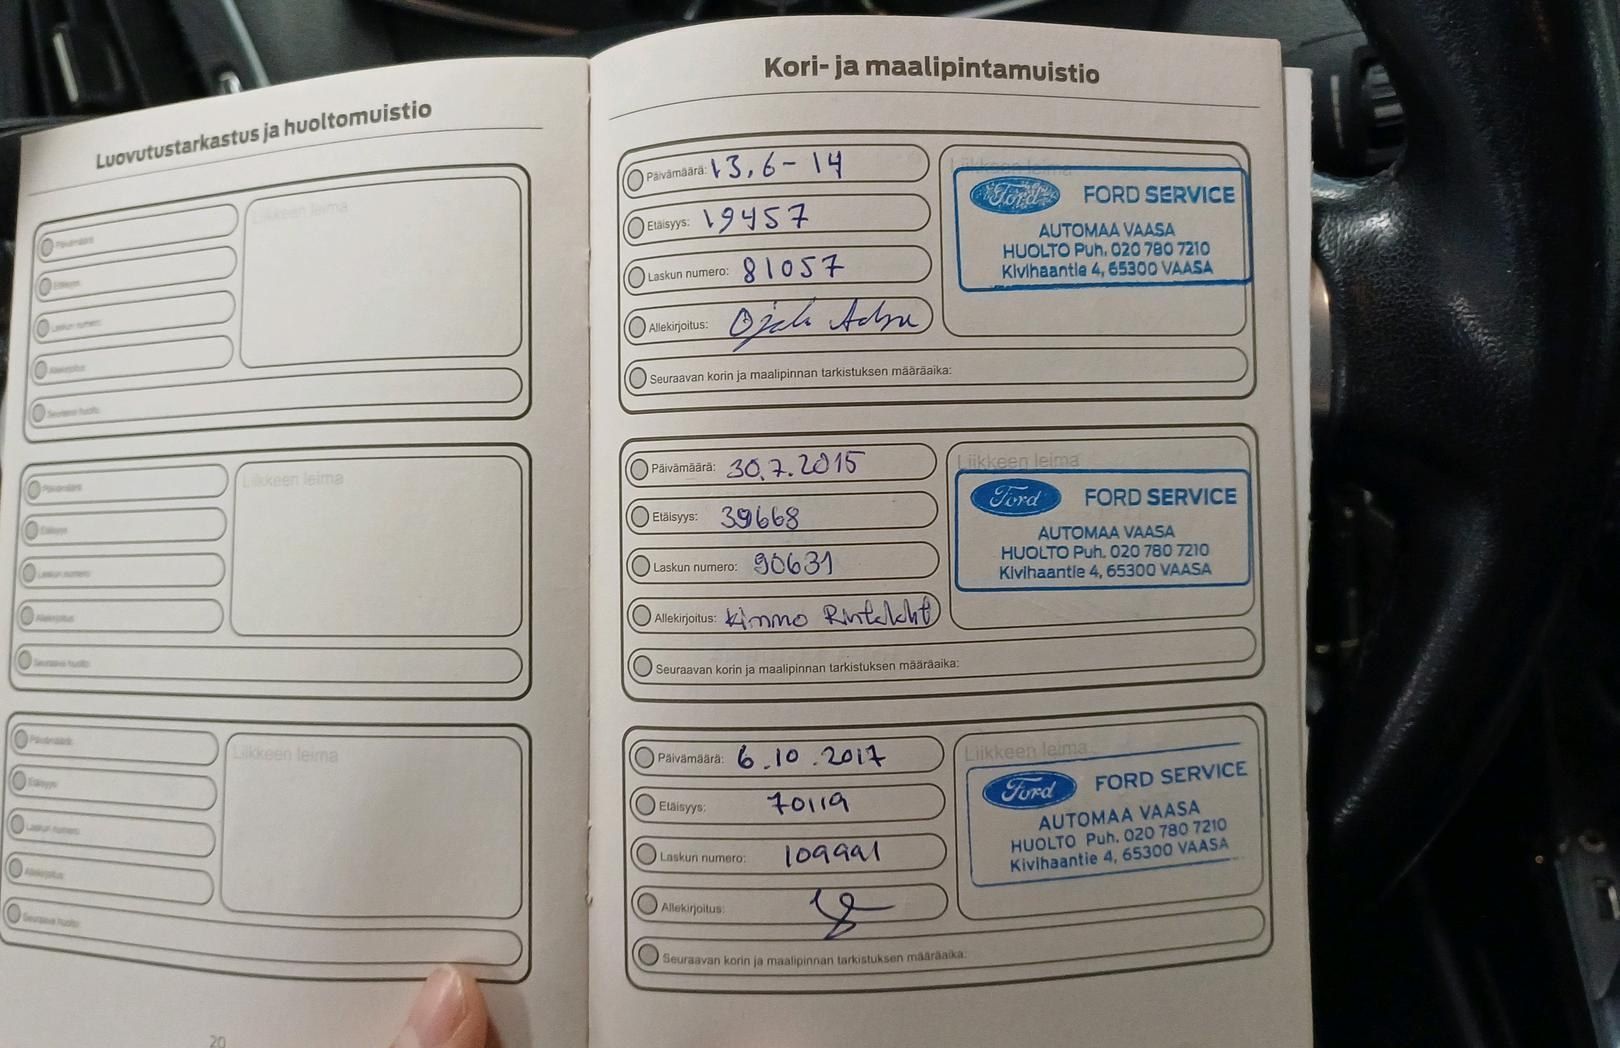 Luovutustarkastus ja huoltomuistio
Päivämäärä:
Etäisyys:
Laskun numero:
Allekirjoitus:
Seuraava huolto:
Liikkeen leima
Päivämäärä:
Etäisyys:
Laskun numero:
Allekirjoitus:
Seuraava huolto:
Liikkeen leima
Päivämäärä:
Etäisyys:
Laskun numero:
Allekirjoitus:
Seuraava huolto:
Liikkeen leima
20
Kori- ja maalipintamuistio
Päivämäärä: 13.6-14
Etäisyys: 19457
Laskun numero: 81057
Allekirjoitus:
Seuraavan korin ja maalipinnan tarkistuksen määräaika:
Liikkeen leima
Ford FORD SERVICE
AUTOMAA VAASA
HUOLTO Puh. 020 780 7210
Kivihaantie 4, 65300 VAASA
Päivämäärä: 30.7.2015
Etäisyys: 39668
Laskun numero: 90631
Allekirjoitus: Kimmo
Seuraavan korin ja maalipinnan tarkistuksen määräaika:
Liikkeen leima
Ford FORD SERVICE
AUTOMAA VAASA
HUOLTO Puh. 020 780 7210
Kivihaantie 4, 65300 VAASA
Päivämäärä: 6.10.2017
Etäisyys: 70119
Laskun numero: 109991
Allekirjoitus:
Seuraavan korin ja maalipinnan tarkistuksen määräaika:
Liikkeen leima
Ford FORD SERVICE
AUTOMAA VAASA
HUOLTO Puh. 020 780 7210
Kivihaantie 4, 65300 VAASA